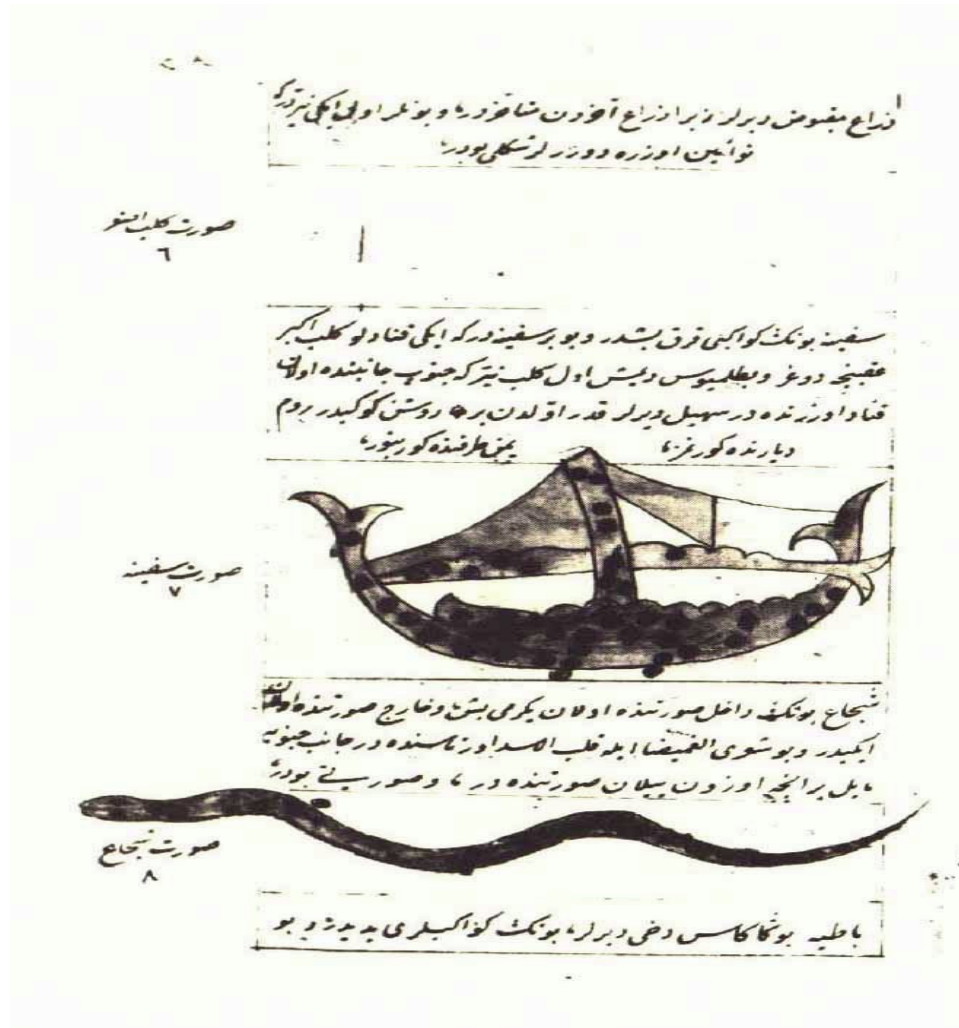 ذراع مقبوض ديرلر زيرا ذراع آخردن متأخردر و بونلر اولى ايكى نيزه قدر
توأمين اوزره دوررلر شكلى بودر
صورت كلب اصغر
٦
سفينه بونك كواكبى قرق بشدر و بو بر سفينه در كه ايكى قنادلو كلب اكبر
عقبنجه دوغر و بطلميوس ديمش اول كلب نيتر كه جنوب جانبنده اولان
قناد اوزرنده در سهيل ديرلر قدر اولدن بر روشن كوكبدر روم
ديارنده كورنمز يمن طرفنده كورينور
صورت سفينه
٧
شجاع بونك داخل صورتنده اولان يكرمى بش و خارج صورتنده اولان
ايكيدر و بو شعرى الغميضا ايله قلب الاسد اورتاسنده در جانب جنوبه
مايل بر اينجه اوزون ييلان صورتنده در و صورتى بودر
صورت شجاع
٨
باطيه بوكا كاس دخى ديرلر بونك كواكبلرى يديدر و بو